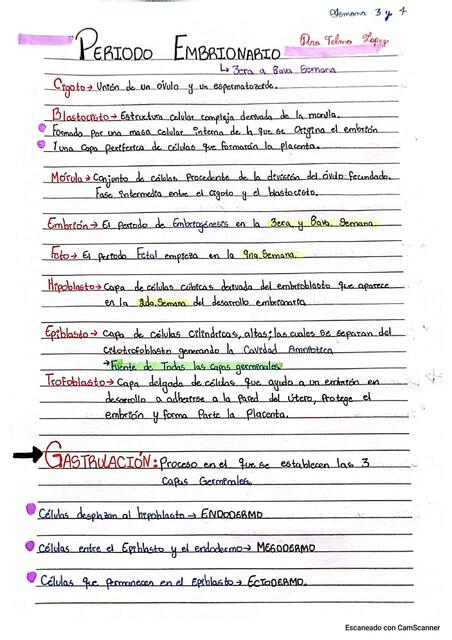 Semana 3 y 4
PERIODO EMBRIONARIO
Dra Telma Lopez
↳ 3era a 8ava Semana
Cigoto → Unión de un óvulo y un espermatozoide.
Blastocisto → Estructura celular compleja derivada de la morula.
Formada por una masa celular interna de la que se origina el embrión
Y una capa periferica de células que formarán la placenta.
Mórula → Conjunto de células procedente de la división del óvulo fecundado.
Fase intermedia entre el cigoto y el blastocisto.
Embrión → El periodo de Embriogénesis en la 3era, y 8ava. Semana.
Feto → El periodo Fetal empieza en la 9na. Semana.
Hipoblasto → Capa de células cúbicas derivada del embrioblasto que aparece
en la 2da. Semana del desarrollo embrionario
Epiblasto → Capa de células cilindricas, altas; las cuales se separan del
citotrofoblasto generando la Cavidad Amniótica
→ Fuente de Todas las capas germinales
Trofoblasto → Capa delgada de células que ayuda a un embrión en
desarrollo a adherirse a la pared del útero, Protege el
embrión y forma Parte la Placenta.
GASTRULACIÓN: Proceso en el que se establecen las 3
Capas Germinales.
Células desplazan al hipoblasto → ENDODERMO
Células entre el Epiblasto y el endodermo → MESODERMO
Células que permanecen en el Epiblasto → ECTODERMO.
Escaneado con CamScanner